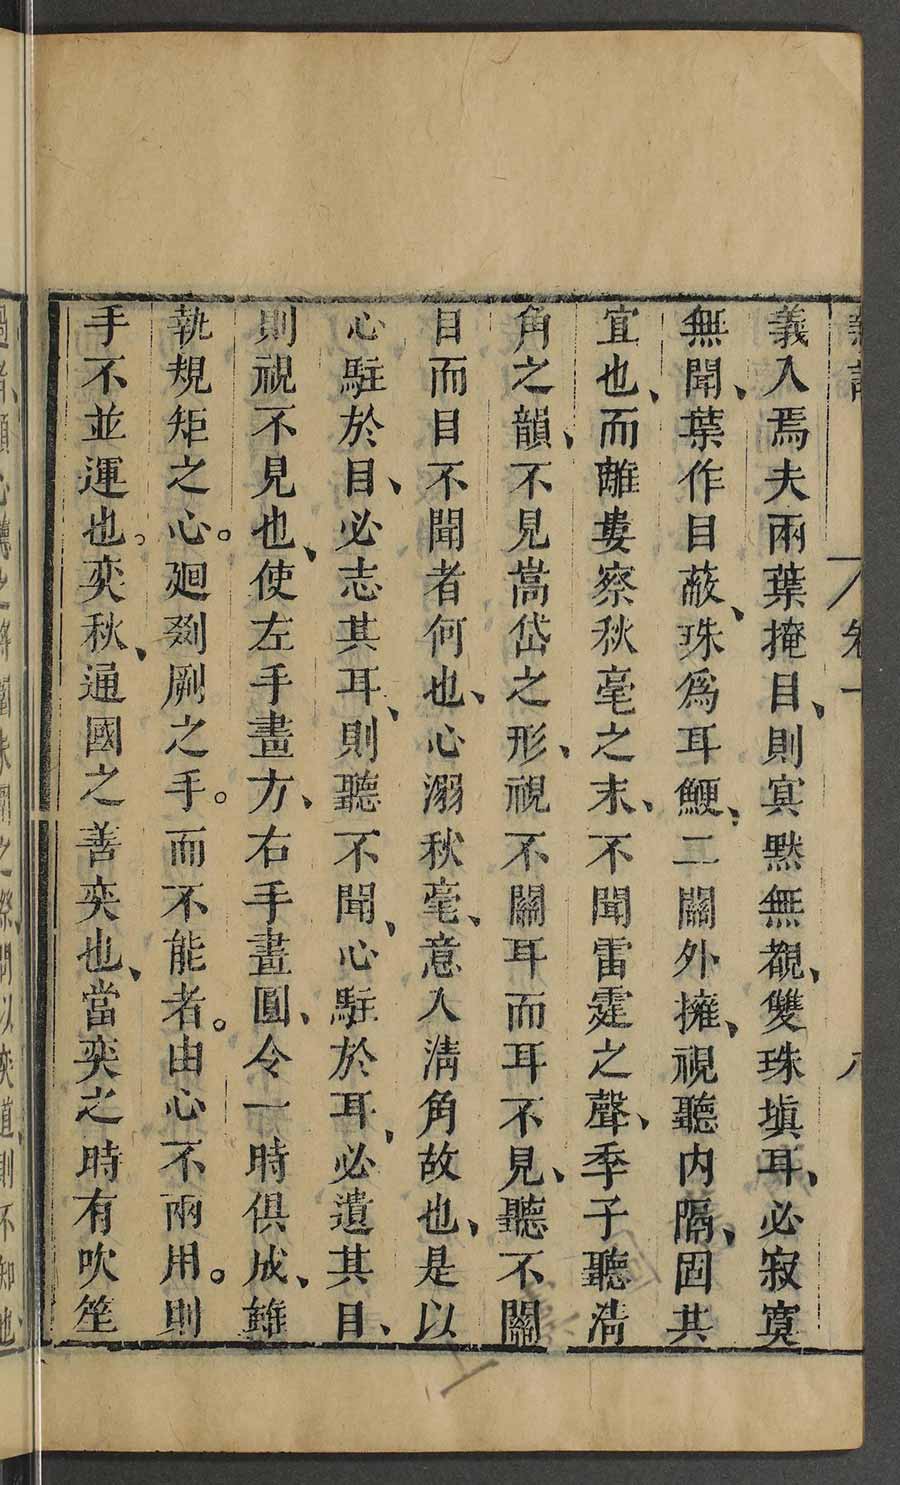 義入焉夫兩葉掩目、則寞黙無覩、雙珠塡耳、必寂寞
無聞、葉作目蔽、珠爲耳鯁、二關外擁、視聽内隔、固其
宜也、而離婁察秋毫之末、不聞雷霆之聲、季子聽淸
角之韻、不見嵩岱之形、視不關耳而耳不見、聽不關
目而目不聞者何也、心溺秋毫、意入淸角故也、是以
心駐於目、必志其耳、則聽不聞、心駐於耳、必遺其目、
則視不見也、使左手畫方、右手畫圓、令一時俱成、雖
執規矩之心。廻剟劂之手。而不能者。由心不兩用。則
手不並運也。奕秋、通國之善奕也、當奕之時有吹笙